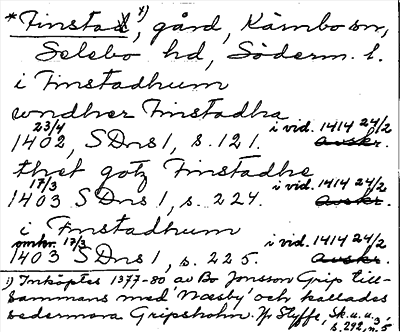 *Finstad 1), gård, Kärnbo sn,
Selebo hd, Söderm. l.
i Finstadhum
wndher Finstadha
23/4 i vid. 1414 24/2
1402, SDns 1, s. 121. avskr.
thet gotz Finstadhe
17/3 i vid. 1414 24/2
1403 SDns 1, s. 224. avskr.
i Finstadhum
omkr. 17/3 i vid. 1414 24/2
1403 SDns 1, s. 225. avskr.
1) Inköptes 1377-80 av Bo Jonsson Grip till-
sammans med Näsby och kallades
sedermera Gripsholm. Styffe, Sk. u. u.3,
s. 292, n. 5